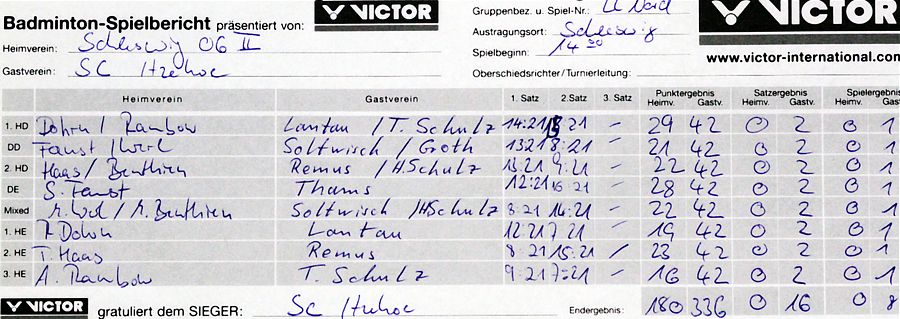 Badminton-Spielbericht präsentiert von: VICTOR Gruppenbez. u. Spiel-Nr.: LL Nord VICTOR
Heimverein: Schleswig 06 II Austragungsort: Schleswig
Gastverein: SC Itzehoe Spielbeginn: 14 00
Oberschiedsrichter/Turnierleitung: www.victor-international.com
Heimverein Gastverein 1. Satz 2. Satz 3. Satz Punktergebnis Heimv. Gastv. Satzergebnis Heimv. Gastv. Spielergebnis Heimv. Gast
1. HD Dohrn / Rambow Lantau / T. Schulz 14:21 15:21 – 29 42 0 2 0 1
DD Faust / 13:21 8:21 – 21 42 0 2 0 1
2. HD Haas / Benthien Remus / H.Schulz 13:21 9:21 – 22 42 0 2 0 1
DE S. Faust Thams 12:21 16:21 – 28 42 0 2 0 1
Mixed / M. Benthien Soltwisch / H Schulz 8:21 14:21 – 22 42 0 2 0 1
1. HE Dohrn Lantau 12:21 7:21 – 19 42 0 2 0 1
2. HE T. Haas Remus 8:21 15:21 / 23 42 0 2 0 1
3. HE A. Rambow T. Schulz 9:21 7:21 – 16 42 0 2 0 1
VICTOR gratuliert dem SIEGER: SC Itzehoe Endergebnis: 180 336 0 16 0 8